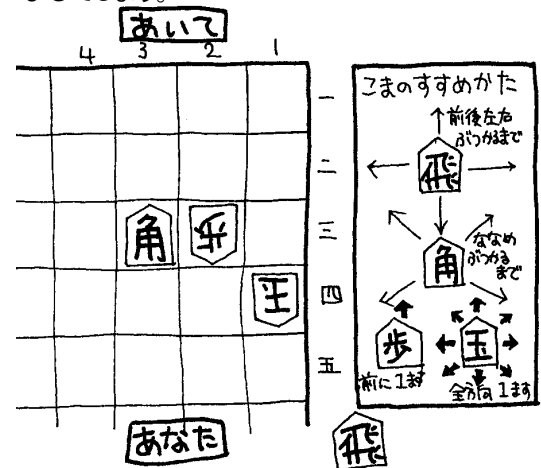 あいて
4 3 2 1
一
二
三
四
五
角 歩
玉
こまのすすめかた
前後左右
ぶつかるまで
飛
角
ななめ
ぶつかる
まで
歩
前に1ます
玉
全方向1ます
あなた
飛